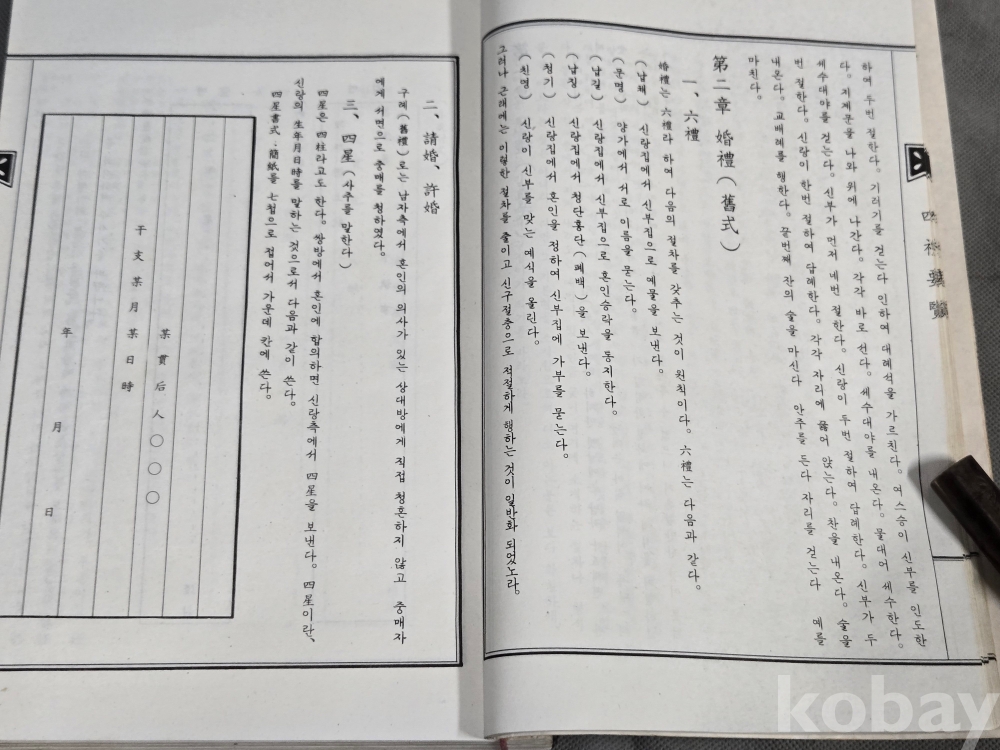 四禮要覽
하여 두번 절한다。 기러기를 걷는다 인하여 대례석을 가르친다。 여스승이 신부를 인도한
다。 저제문을 나와 위에 나간다。 각각 바로 선다。 세수대야를 내온다。 물대어 세수한다。
세수대야를 걷는다。 신부가 먼저 네번 절한다。 신랑이 두번 절하여 답례한다。 신부가 두
번 절한다。 신랑이 한번 절하여 답례한다。 각각 자리에 꿇어 앉는다。 찬을 내온다。 술을
내온다。 교배례를 행한다。 끝번째 잔의 술을 마신다 안주를 든다 자리를 걷는다 예를
마친다。
第二章 婚禮(舊式)
一、六禮
婚禮는 六禮라 하여 다음의 절차를 갖추는 것이 원칙이다。 六禮는 다음과 같다。
(납채) 신랑집에서 신부집으로 예물을 보낸다。
(문명) 양가에서 서로 이름을 묻는다。
(납길) 신랑집에서 신부집으로 혼인승락을 통지한다。
(납징) 신랑집에서 청단홍단(폐백)을 보낸다。
(청기) 신랑집에서 혼인을 정하여 신부집에 가부를 묻는다。
(친영) 신랑이 신부를 맞는 예식을 올린다。
그러나 근래에는 이렇한 절차를 줄이고 신구절충으로 적절하게 행하는 것이 일반화 되었노라。
二、請婚、許婚
구례(舊禮)로는 남자측에서 혼인의 의사가 있는 상대방에게 직접 청혼하지 않고 중매자
에게 서면으로 중매를 청하였다。
三、四星(사주를 말한다)
四星은 四柱라고도 한다。 쌍방에서 혼인에 합의하면 신랑측에서 四星을 보낸다。 四星이란、
신랑의 生年月日時를 말하는 것으로서 다음과 같이 쓴다。
四星書式・簡紙를 七첩으로 접어서 가운데 칸에 쓴다。
某貫后人〇〇〇
干支某月某日時
年 月 日
kobay